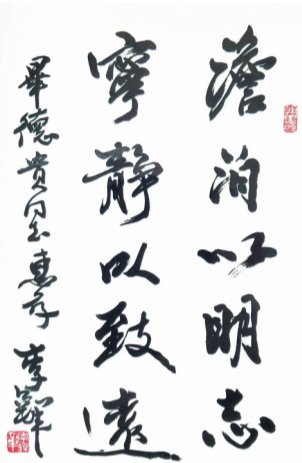 澹泊以明志
寧靜以致遠
畢德贵同志惠存
李鐸